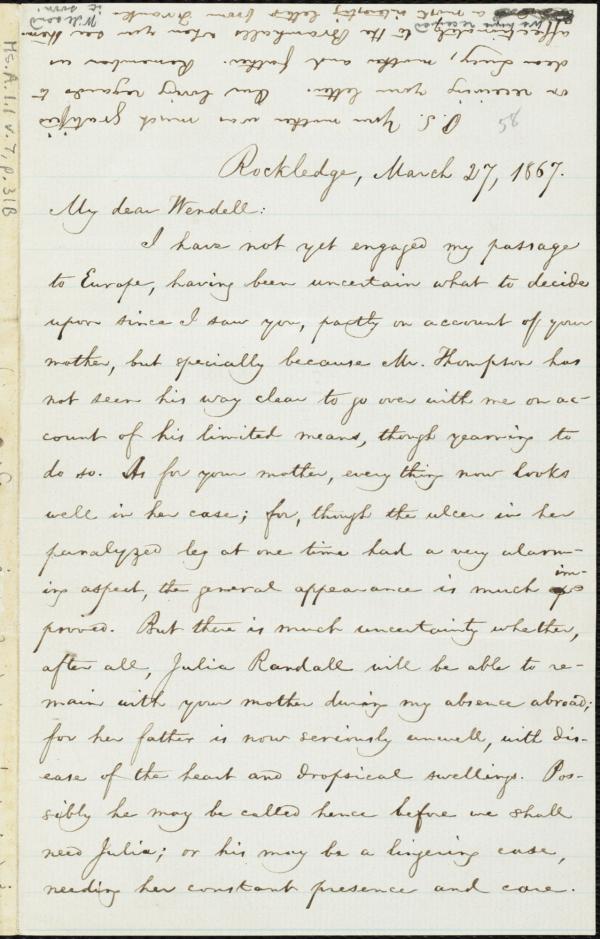 P. S. Your mother was much gratified
on receiving your letter. Our loving regards to
dear Lucy, mother and father. Remember us
affectionately to the Bramhalls when you see them.
We have received
a most interesting letter from Frank
58
Ms. A. 1. 1 v. 7, p. 31B
Rockledge, March 27, 1867.
My dear Wendell:
I have not yet engaged my passage
to Europe, having been uncertain what to decide
upon since I saw you, partly on account of your
mother, but specially because Mr. Thompson has
not seen his way clear to go over with me on ac-
count of his limited means, though yearning to
do so. As for your mother, every thing now looks
well in her case; for, though the ulcer in her
paralyzed leg at one time had a very alarm-
ing aspect, the general appearance is much im-
proved. But there is much uncertainty whether,
after all, Julia Randall will be able to re-
main with your mother during my absence abroad;
for her father is now seriously unwell, with dis-
ease of the heart and dropsical swellings. Pos-
sibly he may be called hence before we shall
need Julia; or his may be a lingering case,
needing her constant presence and care.